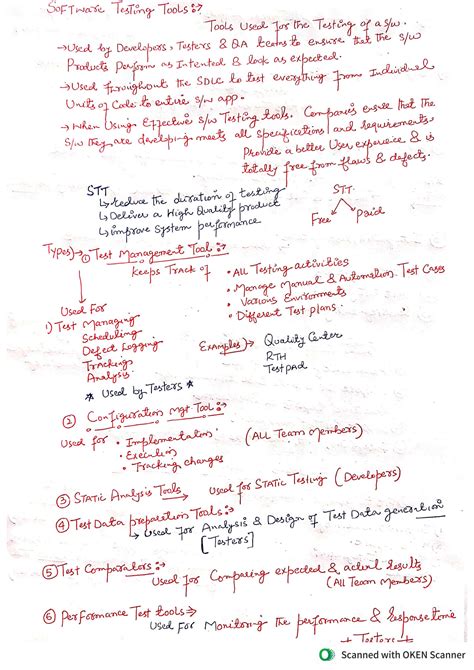 Software Testing Tools:→
Tools Used for the Testing of a s/w.
→Used by Developers, Testers & QA teams to ensure that the s/w
Products perform as Intented & look as expected.
→Used throughout the SDLC to test everything from Individuel
Units of Code to entire s/w app.
→When Using Effective s/w Testing tools. Companies ensure that the
s/w they are developing meets all specifications and requirements,
Provide a better User experience & is
totally free from flaws & defects.
STT
↳reduce the duration of testing
↳Deliver a High Quality product
↳improve System performance
STT
Free Paid
Types→ ① Test Management Tool:→
keeps Track of
• All Testing activities
• Manage Manual & Automation Test Cases
• Various Environments
• Different Test plans.
Used For
1) Test Managing
Scheduling
Defect Logging
Tracking
Analysis
Examples→ Quality Center
RTH
Testpad
* Used by Testers *
② Configuration Mgt Tool:→
Used for • Implementation
• Execution
• Tracking changes
(All Team Members)
③ Static Analysis Tools
Used for Static Testing (Developers)
④ Test Data preparation Tools:→
↳ Used for Analysis & Design of Test Data generation
[Testers]
⑤ Test Comparators:→
Used for Comparing expected & actual results
(All Team Members)
⑥ Performance Test tools→
Used For Monitoring the performance & response time
Testers
Scanned with OKEN Scanner